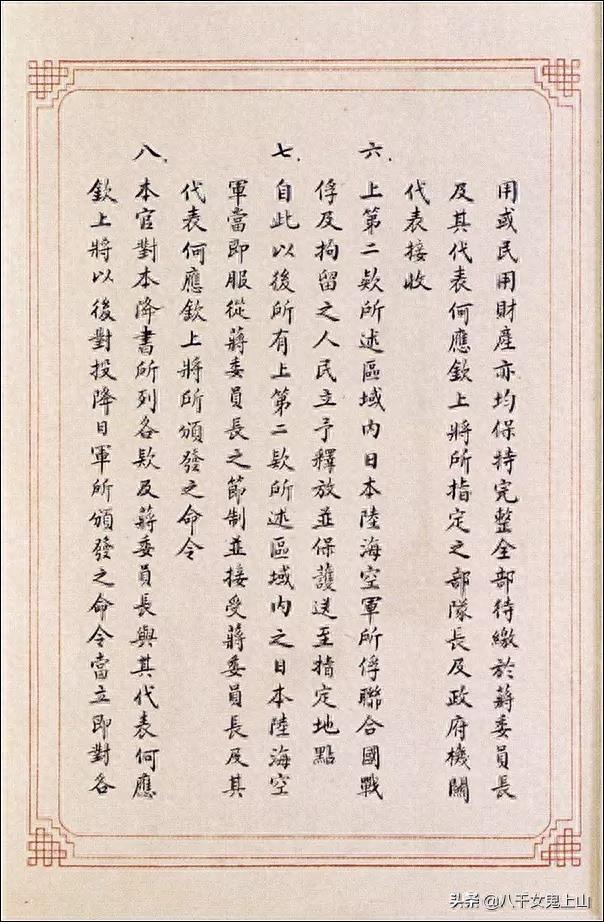 用或民用財產亦均保持完整全部待繳於蔣委員長
及其代表何應欽上將所指定之部隊長及政府機關
代表接收
六．上第二欵所述區域內日本陸海空軍所俘聯合國戰
俘及拘留之人民立予釋放並保護送至指定地點
七．自此以後所有上第二欵所述區域內之日本陸海空
軍當即服從蔣委員長之節制並接受蔣委員長及其
代表何應欽上將所頒發之命令
八．本官對本降書所列各欵及蔣委員長與其代表何應
欽上將以後對投降日軍所頒發之命令當立即對各
头条 @八千女鬼上山